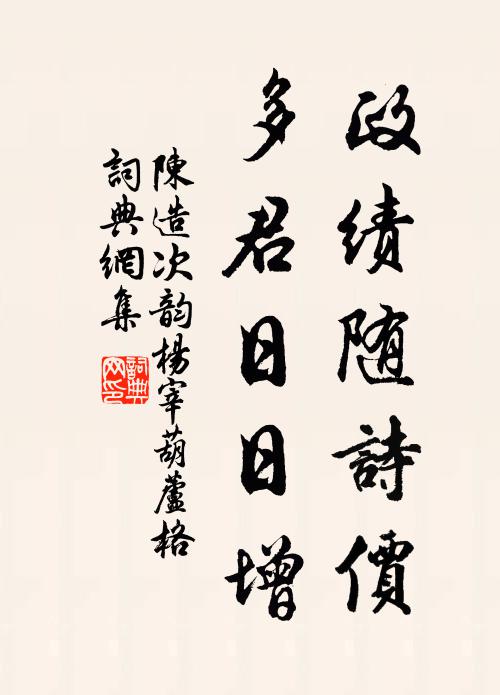 政绩随詩價
多君日日增
陳造次韵楊宰葫蘆格
詞典網集
詞典網印